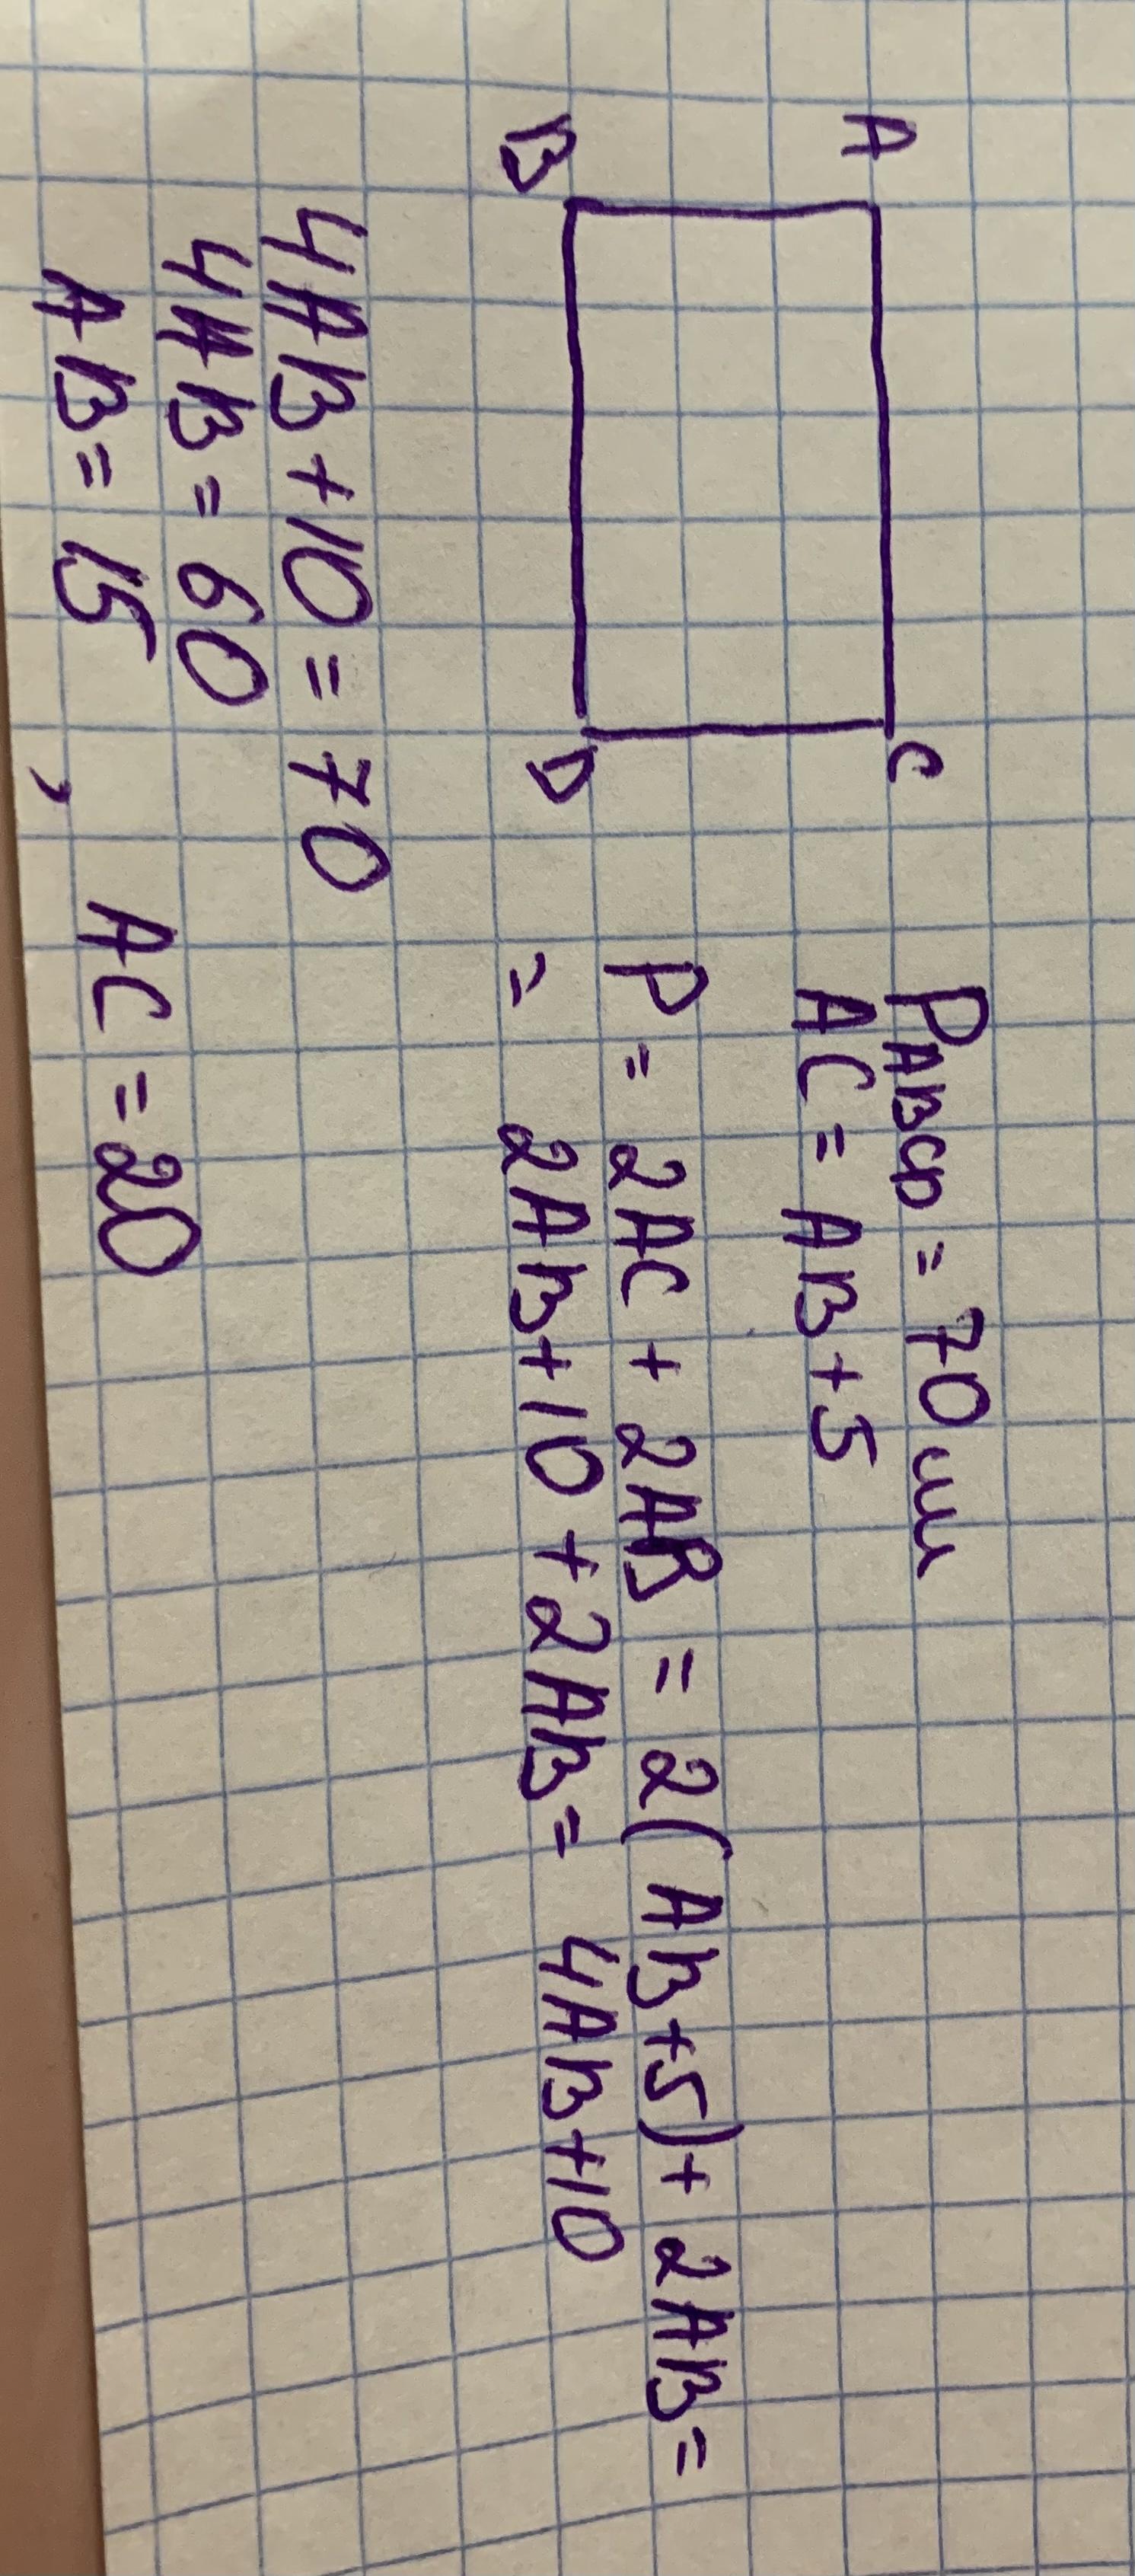 A C
B D
P ABCD = 70 см
AC = AB + 5
P = 2AC + 2AB = 2(AB+5) + 2AB =
= 2AB + 10 + 2AB = 4AB + 10
4AB + 10 = 70
4AB = 60
AB = 15 , AC = 20